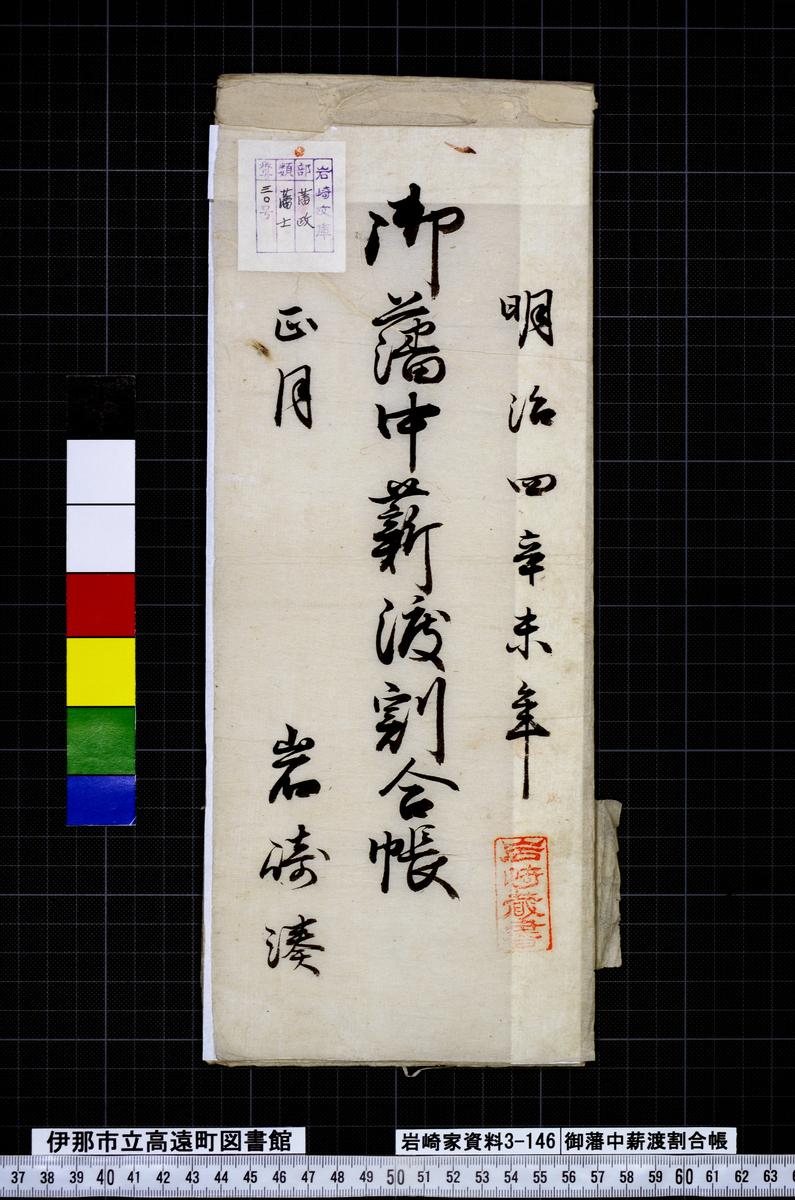 明治四辛未年
御藩中薪渡割合帳
正月
岩崎湊
岩崎文庫
部 藩政
類 藩士
三〇号
岩崎蔵書
伊那市立高遠町図書館
岩崎家資料3-146
御藩中薪渡割合帳
37 38 39 40 41 42 43 44 45 46 47 48 49 50 51 52 53 54 55 56 57 58 59 60 61 62 63